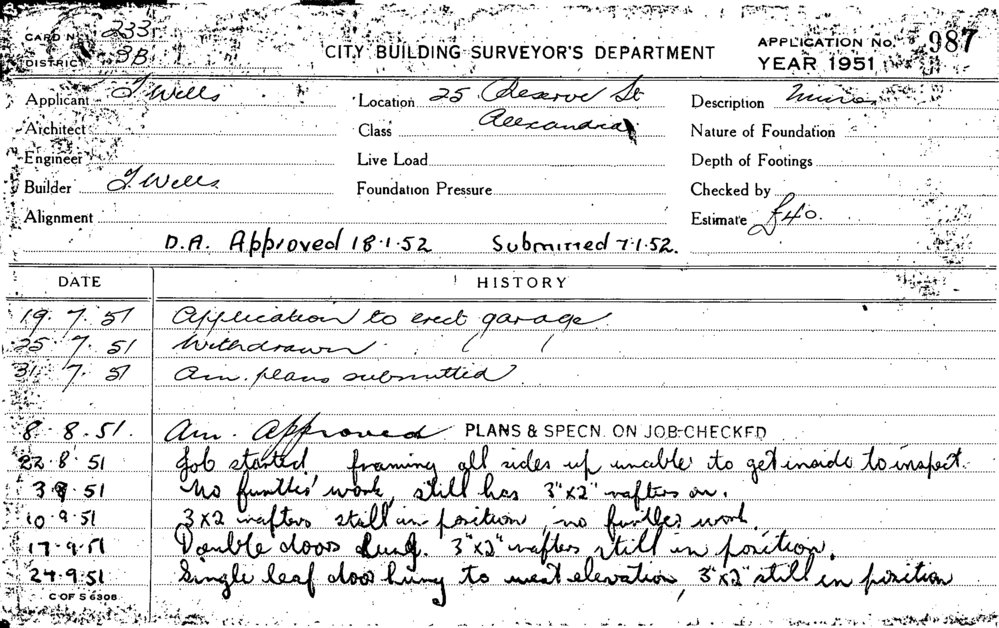 CARD No. 233
DISTRICT 3B
CITY BUILDING SURVEYOR'S DEPARTMENT
APPLICATION No. 987
YEAR 1951
Applicant J Wells Location 25 Reserve St Description Minor
Architect Class Alexandria Nature of Foundation
Engineer Live Load Depth of Footings
Builder J Wells Foundation Pressure Checked by
Alignment Estimate £40.
D.A. Approved 18.1.52 Submitted 7.1.52.
DATE HISTORY
19. 7. 51 Application to erect garage
25. 7. 51 Withdrawn
31. 7. 51 Am. plans submitted
8. 8. 51. Am. Approved PLANS & SPECN. ON JOB-CHECKED
22.8.51 Job started framing all sides up unable to get inside to inspect.
3 9.51 No further work, still has 3"x2" rafters on.
10.9.51 3x2 rafters still in position, no further work.
17.9.51 Double doors hung. 3"x2" rafters still in position.
24.9.51 Single leaf door hung to west elevation, 3"x2" still in position
C OF S 6308